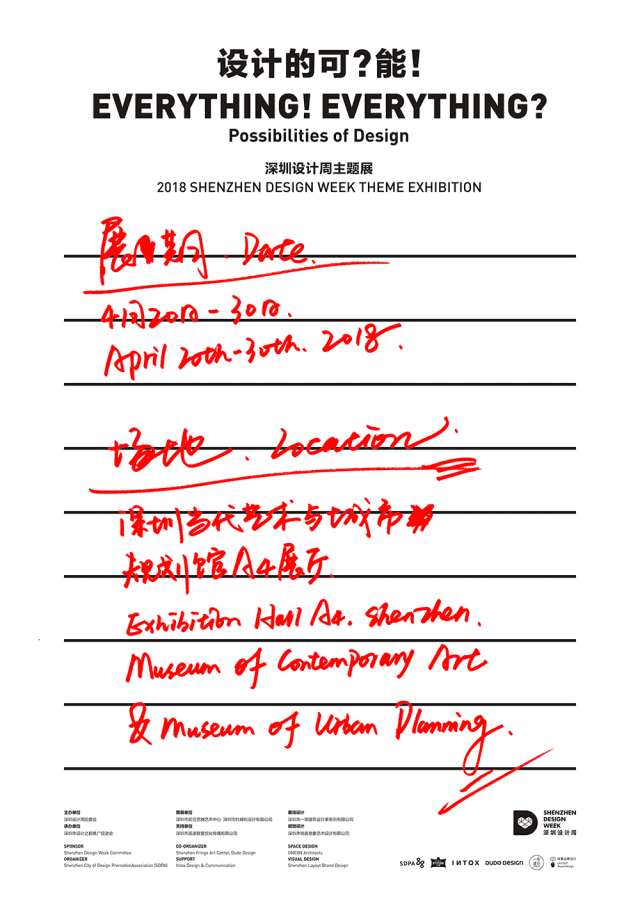 设计的可?能!
EVERYTHING! EVERYTHING?
Possibilities of Design
深圳设计周主题展
2018 SHENZHEN DESIGN WEEK THEME EXHIBITION
展期 . Date.
4月20日-30日.
April 20th-30th. 2018.
场地 . Location.
深圳当代艺术与城市
规划馆A4展厅
Exhibition Hall A4. Shenzhen.
Museum of Contemporary Art
及 Museum of Urban Planning.
主办单位
深圳设计周组委会
承办单位
深圳市设计之都推广促进会
SPONSOR
Shenzhen Design Week Committee
ORGANIZER
Shenzhen City of Design PromotionAssociation (SDPA)
策展单位
支持单位
CO-ORGANIZER
Shenzhen Fringe Art Center, Dudo Design
SUPPORT
Intox Design & Communication
展场设计
视觉设计
SPACE DESIGN
ONEXN Architects
VISUAL DESIGN
Shenzhen Layout Brand Design
SHENZHEN
DESIGN
WEEK
深圳设计周
SDPA
INTOX
DUDO DESIGN